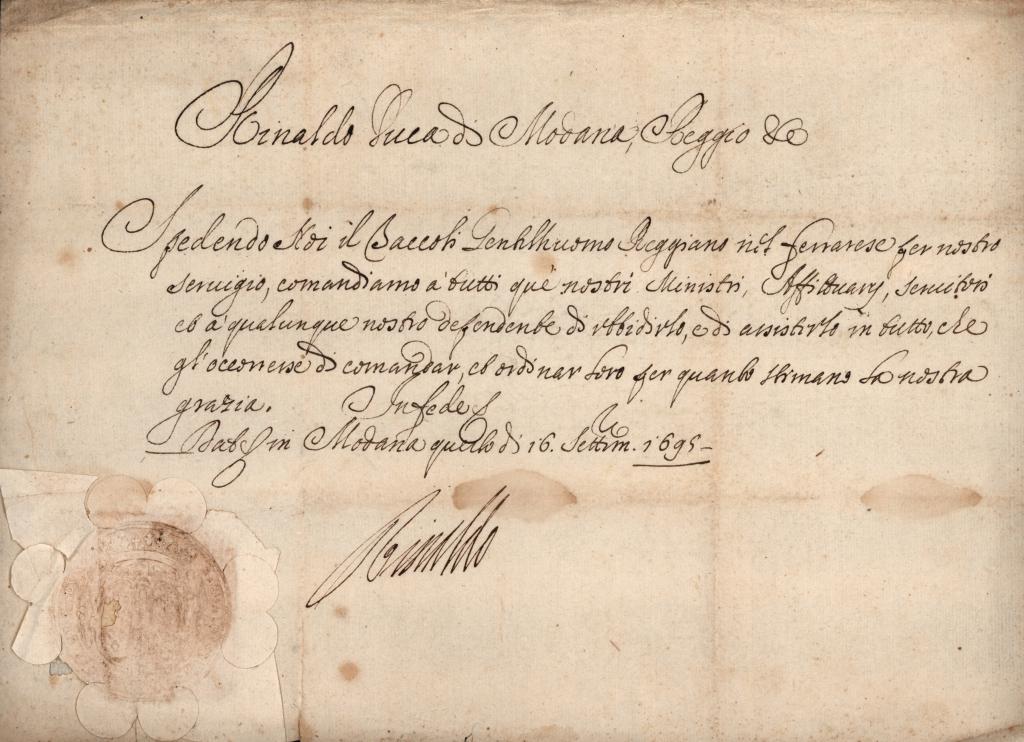 Rinaldo Duca di Modana, Reggio &c
Spedendo Noi il Baccoli Gentilhuomo Reggiano nel ferrarese per nostro
seruigio, comandiamo a' tutti que' nostri Ministri, Affittuarij, seruitori
et a' qualunque nostro dependente di vbbidirlo, e di assistirlo in tutto, che
gl'occorresse di comandar, et ordinar loro per quanto stimano la nostra
grazia. In fede
Dat in Modana questo dì 16. Settem. 1695
Rinaldo